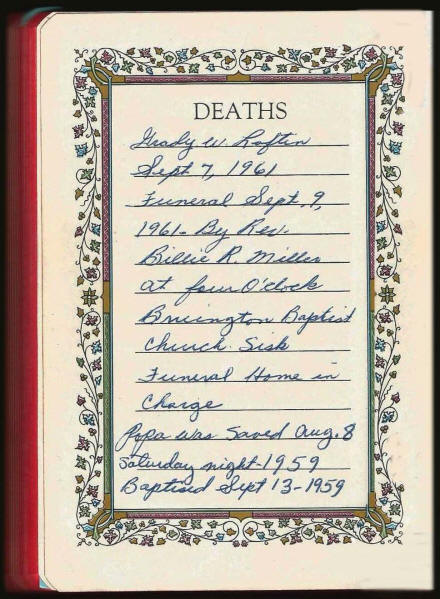 DEATHS
Grady W. Loftin
Sept 7, 1961
Funeral Sept. 9,
1961- By Rev.
Billie R. Miller
at four O'clock
Bruington Baptist
Church. Sisk
Funeral Home in
Charge
Papa was Saved Aug. 8
Saturday night-1959
Baptised Sept 13-1959